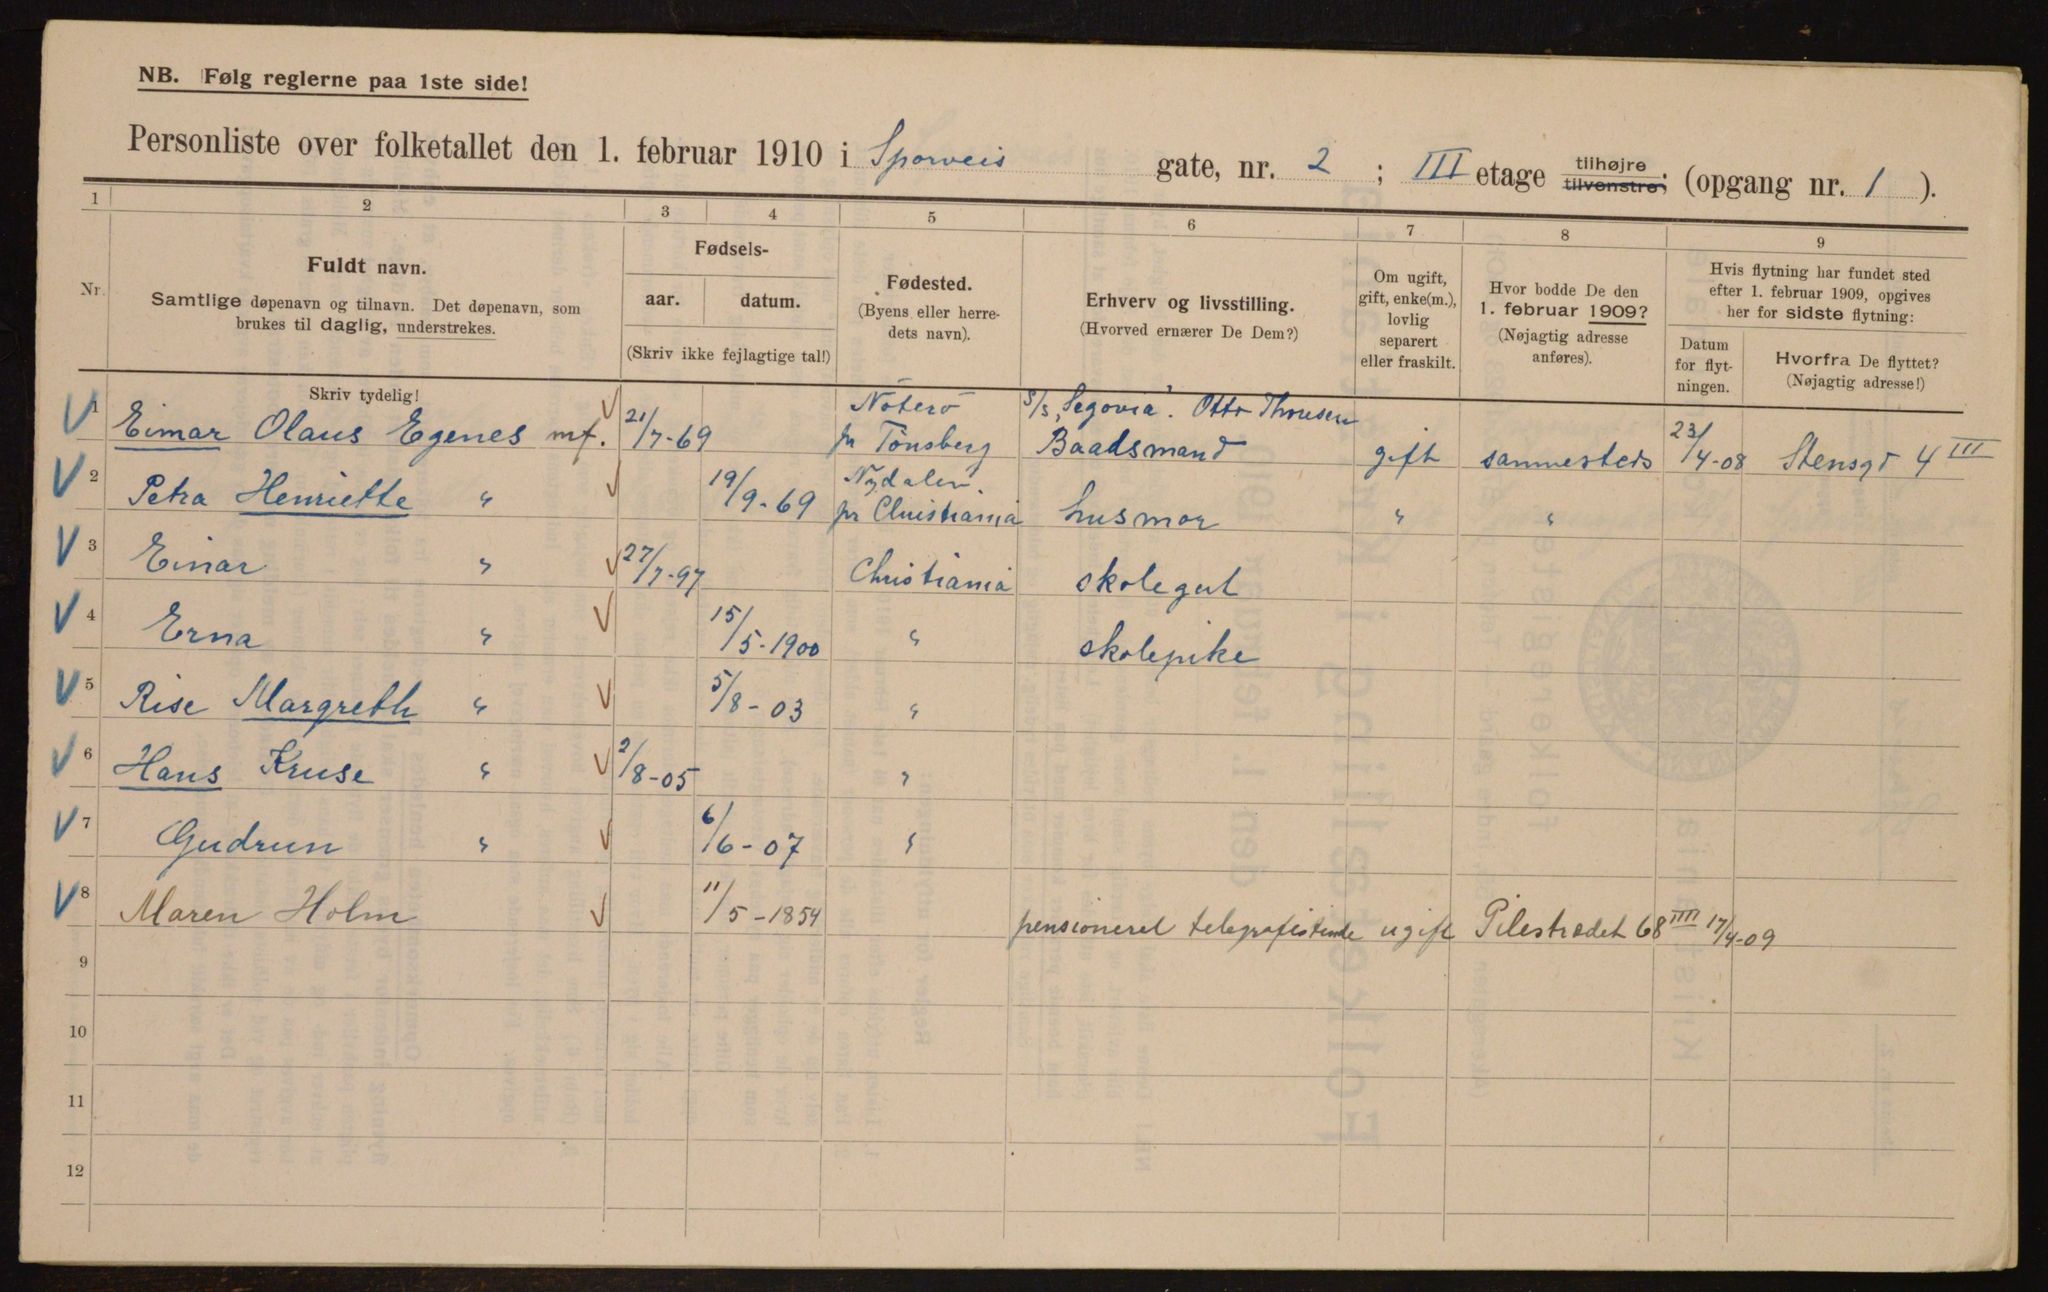 NB. Følg reglerne paa 1ste side!
Personliste over folketallet den 1. februar 1910 i Sporveis gate, nr. 2 ; III etage tilhøjre tilvenstre; (opgang nr. 1 ).
1 2 3 4 5 6 7 8 9
Nr.
Fuldt navn.
Samtlige døpenavn og tilnavn. Det døpenavn, som
brukes til daglig, understrekes.
Skriv tydelig!
Fødsels-
aar. datum.
(Skriv ikke fejlagtige tal!)
Fødested.
(Byens eller herre-
dets navn).
Erhverv og livsstilling.
(Hvorved ernærer De Dem?)
Om ugift,
gift, enke(m.),
lovlig
separert
eller fraskilt.
Hvor bodde De den
1. februar 1909?
(Nøjagtig adresse
anføres).
Hvis flytning har fundet sted
efter 1. februar 1909, opgives
her for sidste flytning:
Datum
for flyt-
ningen.
Hvorfra De flyttet?
(Nøjagtig adresse!)
Nöterö S/S "Segovia". Otto Thoresen
1 Eimar Olaus Egenes mf. 21/7-69 pr Tönsberg Baadsmand gift sammesteds 23/4-08 Stensgd 4 III
Nydalen
2 Petra Henriette " 19/9-69 pr Christiania husmor " "
3 Einar " 27/7-97 Christiania skolegut
4 Erna " 15/5-1900 " skolepike
5 Rise Margreth " 5/8-03 "
6 Hans Kruse " 2/8-05 "
7 Gudrun " 6/6-07 "
8 Maren Holm 11/5-1854 pensioneret telegrafistinde ugift Pilestrædet 68 IIII 17/4-09
9
10
11
12